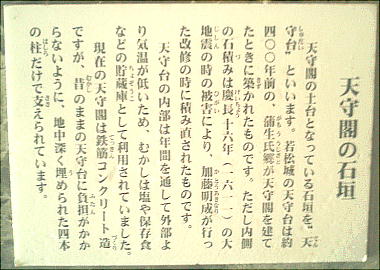 天守閣の石垣
天守閣の土台となっている石垣を"天
守台"といいます。若松城の天守台は約
四〇〇年前の、蒲生氏郷が天守閣を建て
たときに築かれたものです。ただし内側
の石積みは慶長十六年(一六一一)の大
地震の時の被害により、加藤明成が行っ
た改修の時に積み直されたものです。
天守台の内部は年間を通して外部よ
り気温が低いため、むかしは塩や保存食
などの貯蔵庫として利用されていました。
現在の天守閣は鉄筋コンクリート造
ですが、昔のままの天守台に負担がかか
らないように、地中深く埋められた四本
の柱だけで支えられています。